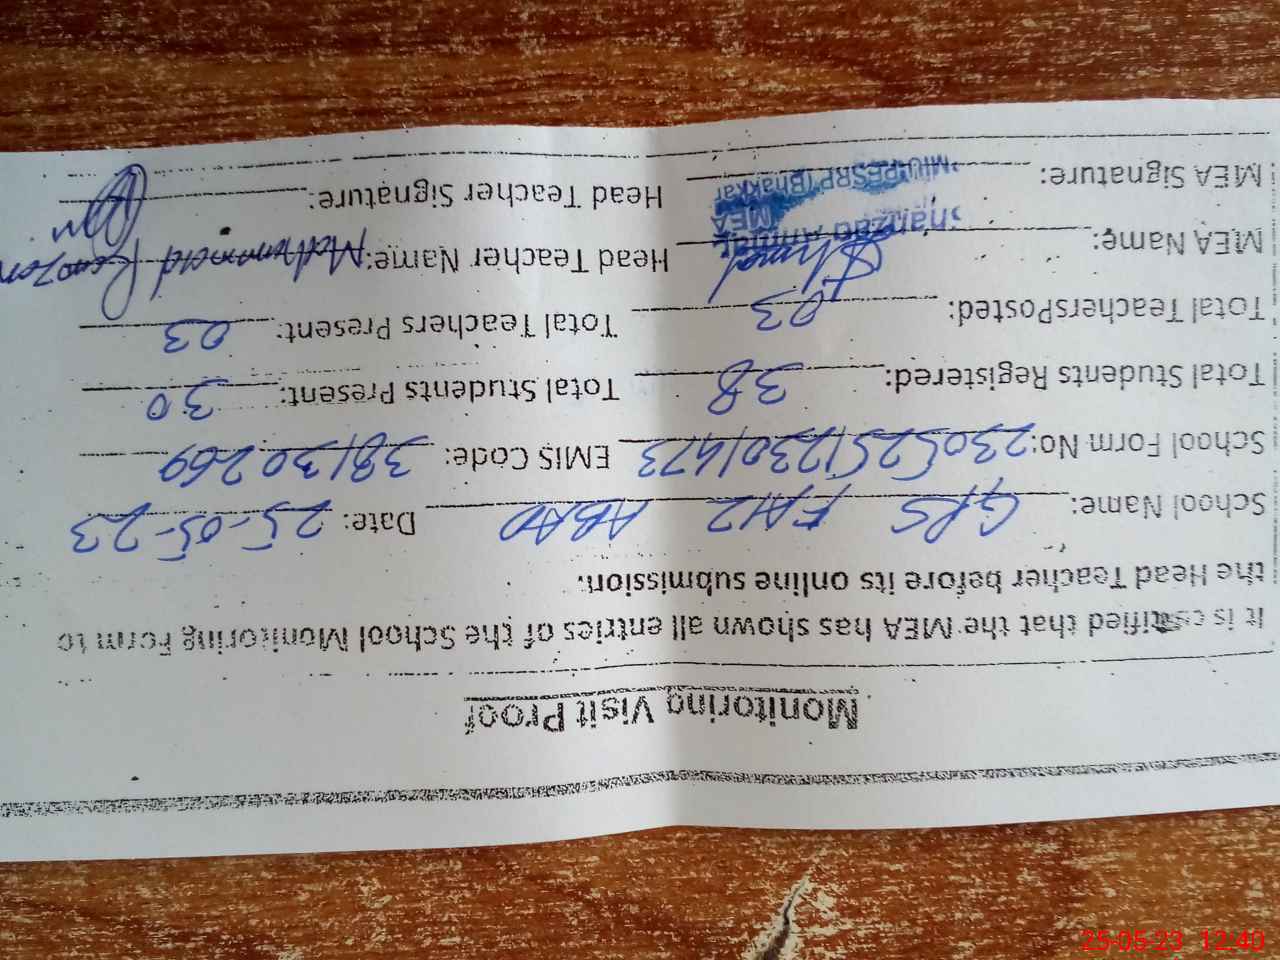 Monitoring Visit Proof
It is certified that the MEA has shown all entries of the School Monitoring Form to
the Head Teacher before its online submission.
School Name: GPS FAIZ ABAD Date: 25-05-23
School Form No: 230525123014 73 EMIS Code: 38130269
Total Students Registered: 38 Total Students Present: 30
Total TeachersPosted: 03 Total Teachers Present: 03
MEA Name: Head Teacher Name: Muhammad Ramazan
MEA
MEA Signature: Head Teacher Signature:
MIU PESRP (Bhakkar
25-05-23 12:40